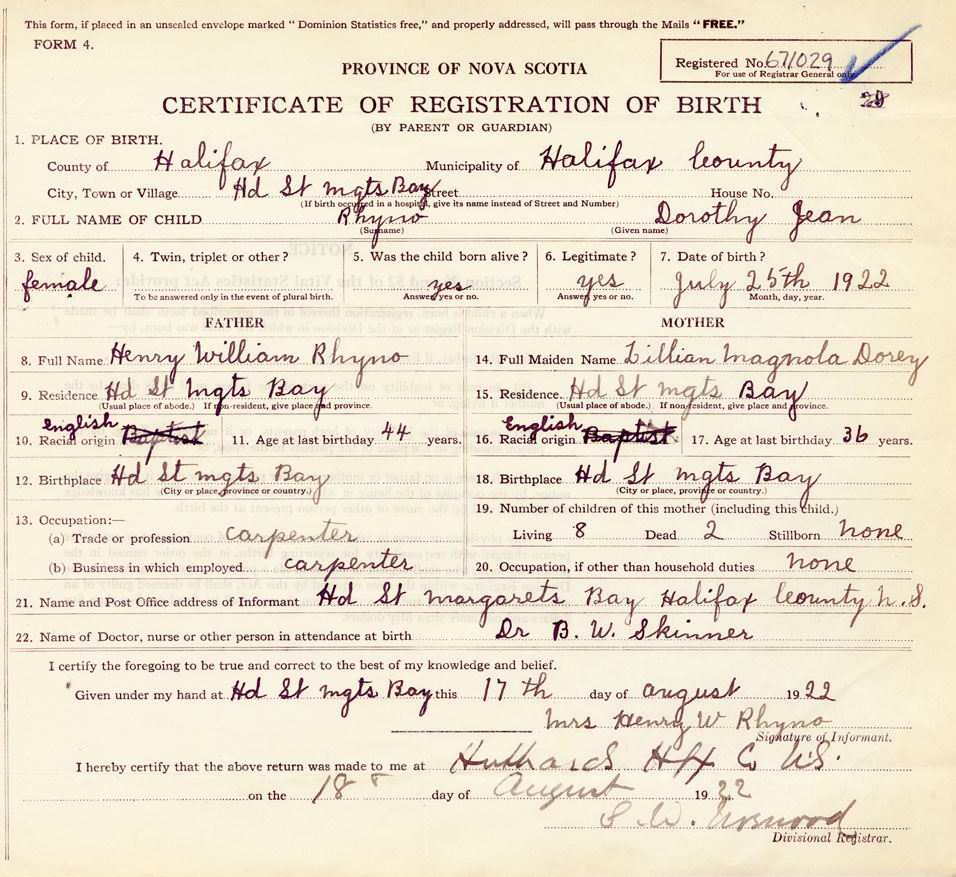 This form, if placed in an unsealed envelope marked "Dominion Statistics free," and properly addressed, will pass through the Mails "FREE."
FORM 4.
Registered No. 671029
For use of Registrar General only.
PROVINCE OF NOVA SCOTIA
CERTIFICATE OF REGISTRATION OF BIRTH
(BY PARENT OR GUARDIAN)
1. PLACE OF BIRTH.
County of Halifax Municipality of Halifax County
City, Town or Village Hd St mgts Bay Street House No.
(If birth occurred in a hospital, give its name instead of Street and Number)
2. FULL NAME OF CHILD Rhyno Dorothy Jean
(Surname) (Given name)
3. Sex of child. 4. Twin, triplet or other? 5. Was the child born alive? 6. Legitimate? 7. Date of birth?
female yes yes July 25th 1922
To be answered only in the event of plural birth. Answer yes or no. Answer, yes or no. Month, day, year.
FATHER MOTHER
8. Full Name Henry William Rhyno 14. Full Maiden Name Lillian Magnola Dorey
9. Residence Hd St Mgts Bay 15. Residence. Hd St mgts Bay
(Usual place of abode.) If non-resident, give place and province. (Usual place of abode.) If non-resident, give place and province.
English English
10. Racial origin Baptist 11. Age at last birthday 44 years. 16. Racial origin Baptist 17. Age at last birthday 36 years.
12. Birthplace Hd St mgts Bay 18. Birthplace Hd St mgts Bay
(City or place, province or country.) (City or place, province or country.)
13. Occupation:— 19. Number of children of this mother (including this child.)
(a) Trade or profession carpenter Living 8 Dead 2 Stillborn None
(b) Business in which employed carpenter 20. Occupation, if other than household duties None
21. Name and Post Office address of Informant Hd St Margarets Bay Halifax County N.S.
22. Name of Doctor, nurse or other person in attendance at birth Dr B. W. Skinner
I certify the foregoing to be true and correct to the best of my knowledge and belief.
Given under my hand at Hd St mgts Bay this 17th day of august 1922
Mrs Henry W Rhyno
Signature of Informant.
I hereby certify that the above return was made to me at Hubbards Hfx Co N.S.
on the 18 day of August 1922
Divisional Registrar.